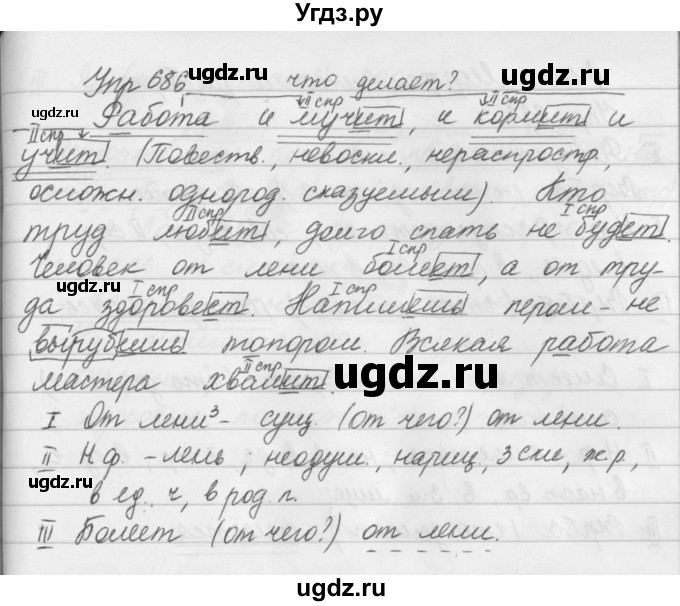 Угдз.ру
Упр 686 что делает?
II спр II спр
Работа и мучит, и кормит и
II спр
учит. (Повеств., невоскл., нераспростр.,
осложн. однород. сказуемыми). Кто
II спр I спр
труд любит, долго спать не будет.
I спр
Человек от лени болеет, а от тру-
I спр I спр
да здоровеет. Напишешь пером - не
вырубишь топором. Всякая работа
II спр
мастера хвалит.
I От лени³ - сущ. (от чего?) от лени.
II Н.ф. - лень, неодуш., нариц, 3 скл, ж.р.,
в ед. ч, в род. п.
III Болеет (от чего?) от лени.
ugdz.ru
ugdz.ru
ugdz.ru
ugdz.ru
ugdz.ru
ugdz.ru
ugdz.ru
ugdz.ru
ugdz.ru